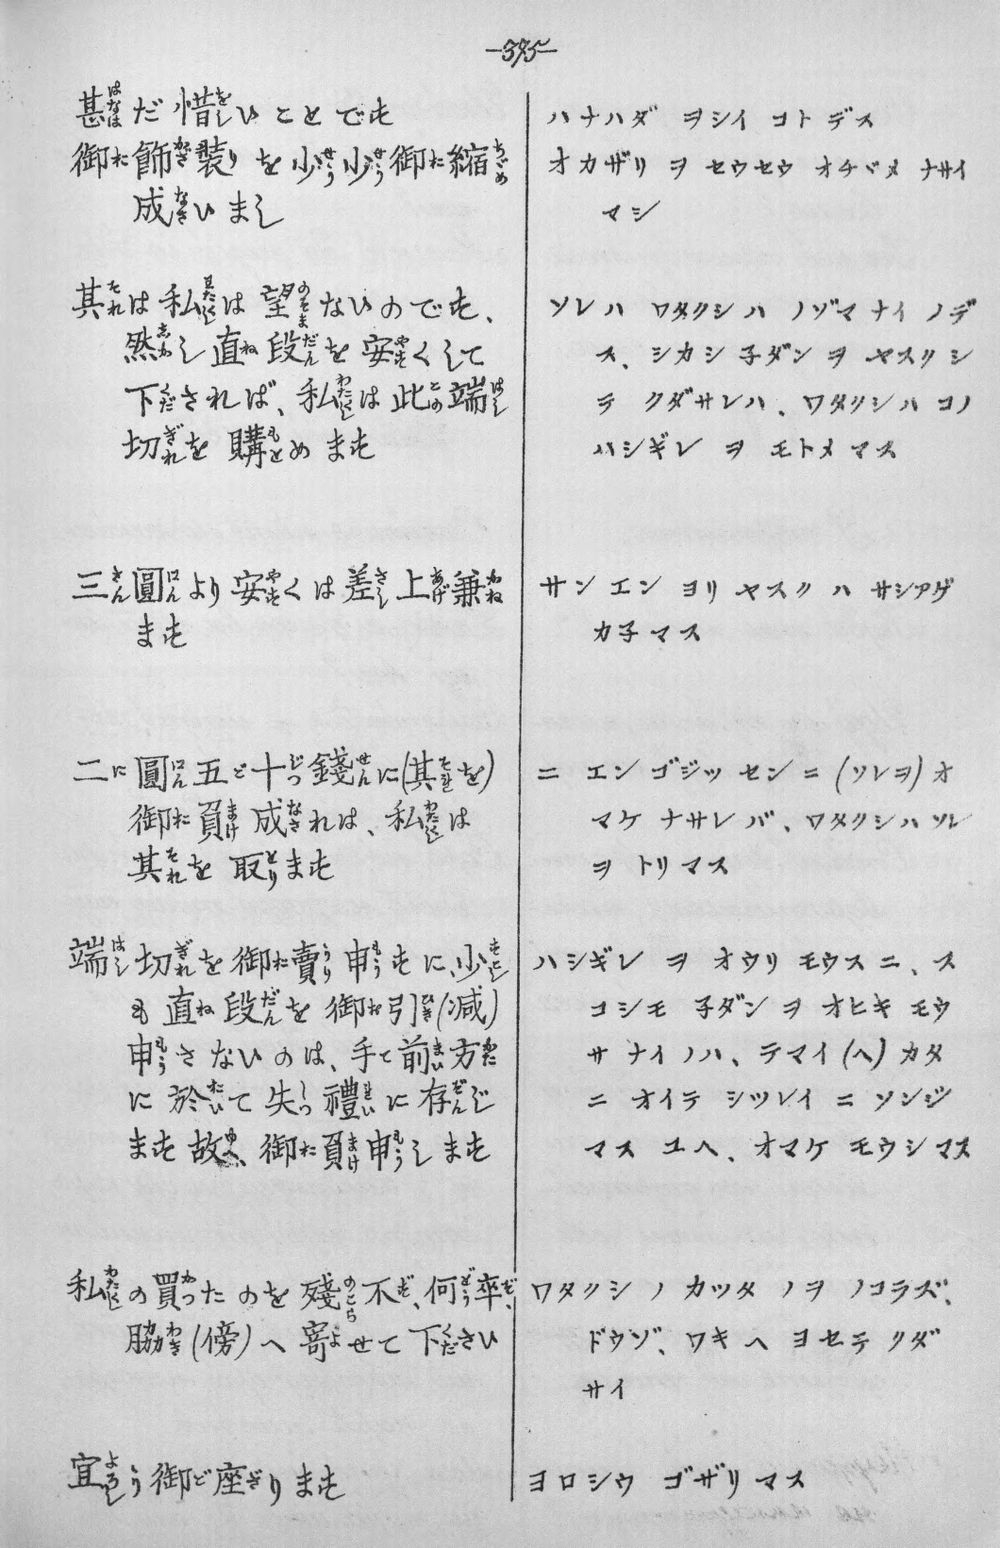 —375—
甚だ惜しいことです
御飾装りを少少御縮
成さいまし
其は私は望ないのです、
然し直段を安くして
下されば、私は此端
切を購めます
三圓より安くは差上兼
ます
二圓五十錢に(其を)
御負成れは、私は
其を取ります
端切を御賣申すに、少し
も直段を御引(減)
申さないのは、手前方
に於て失禮に存じ
ます故、御負申します
私の買たのを殘不、何卒、
脇(傍)へ寄せて下さい
宜う御座ります
ハナハダ ヲシイ コトデス
オカザリ ヲ セウセウ オチヾメ ナサイ
マシ
ソレハ ワタクシハ ノゾマナイノデ
ス、シカシ 子ダン ヲ ヤスクシ
テ クダサレハ、ワタクシハ コノ
ハシギレ ヲ モトメマス
サン エン ヨリ ヤスクハ サシアゲ
カ子マス
ニ エン ゴジッ センニ (ソレヲ) オ
マケ ナサレバ、ワタクシハ ソレ
ヲ トリマス
ハシギレ ヲ オウリ モウスニ、ス
コシモ 子ダン ヲ オヒキ モウ
サナイノハ、テマイ(ヘ)カタ
ニ オイテ シツレイ ニ ソンジ
マス ユヘ、オマケ モウシマス
ワタクシノ カツタノヲ ノコラズ、
ドウゾ、ワキヘ ヨセテ クダ
サイ
ヨロシウ ゴザリマス